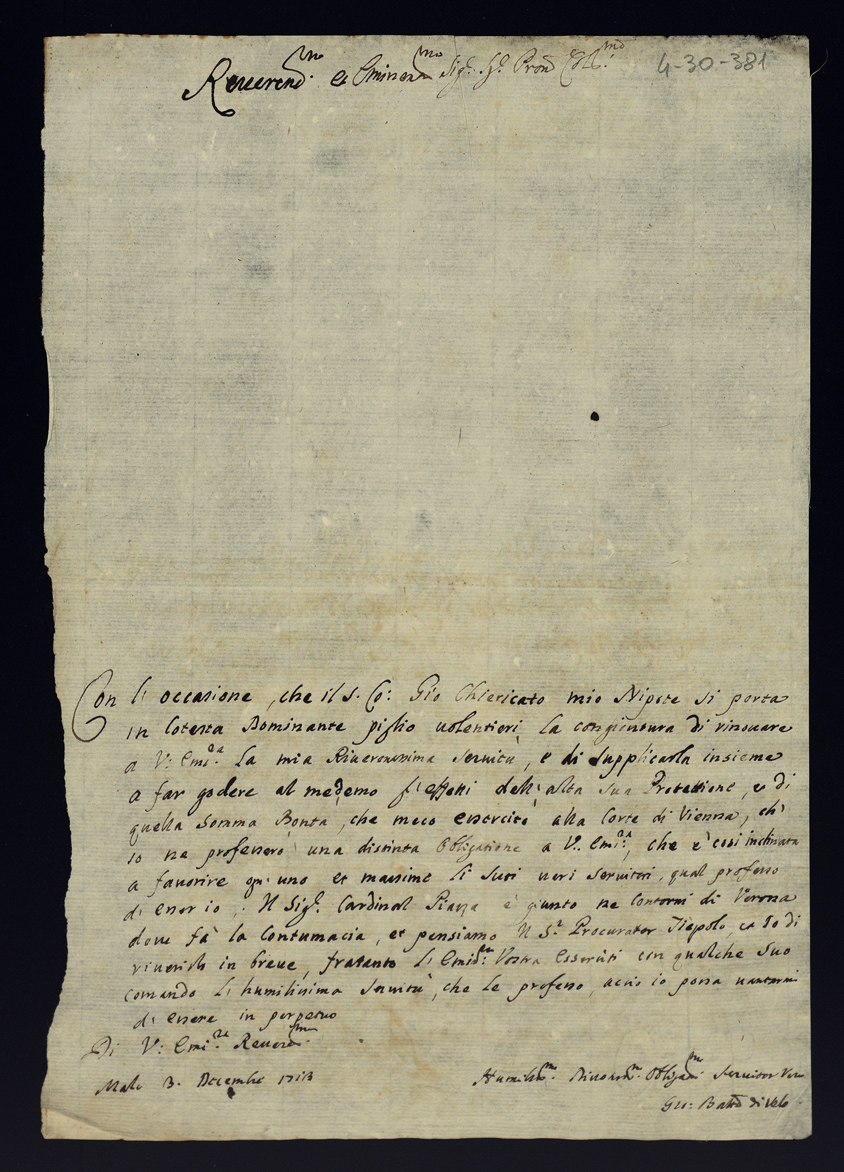 Reuerend.mo et Eminen.mo Sig.r Sig.r Pron Col.mo
4-30-381
Con l'occasione, che il S. Co: Gio Chiericato mio Nipote si porta
in cotesta Dominante piglio uolentieri la congiuntura di rinouare
a V: Emi.za la mia Riuerentissima seruitù, e di supplicarla insieme
a far godere al medemo gl'effetti dell'alta sua Protettione, e di
quella somma Bontà, che meco esercitò alla Corte di Vienna, ch'
io ne professerò una distinta Obligatione a V: Emi.za, che è così inclinata
a fauorire ogn'uno et massime li suoi ueri seruitori, qual professo
d'esser io; Il Sig.r Cardinal Piazza è giunto ne contorni di Verona
doue fà la Contumacia, et pensiamo Il S.r Procurator Tiepolo, et Io di
riuerirlo in breue, fratanto l'Emin.za Vostra Esserciti con qualche suo
comando l'humilissima seruitù, che le professo, acciò io possa uantarmi
di essere in perpetuo
Di V: Emi.za Reueren.ma
Male 3. Decembre 1713
Humiliss.mo Diuotiss.mo Obligat.mo Seruitor Vero
Gio: Batta di Velo